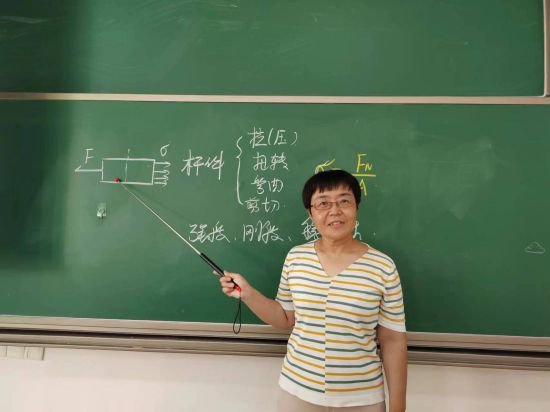 F
σ
杆件
拉(压)
扭转
弯曲
剪切.
强度、刚度、稳
σ
F_N
A